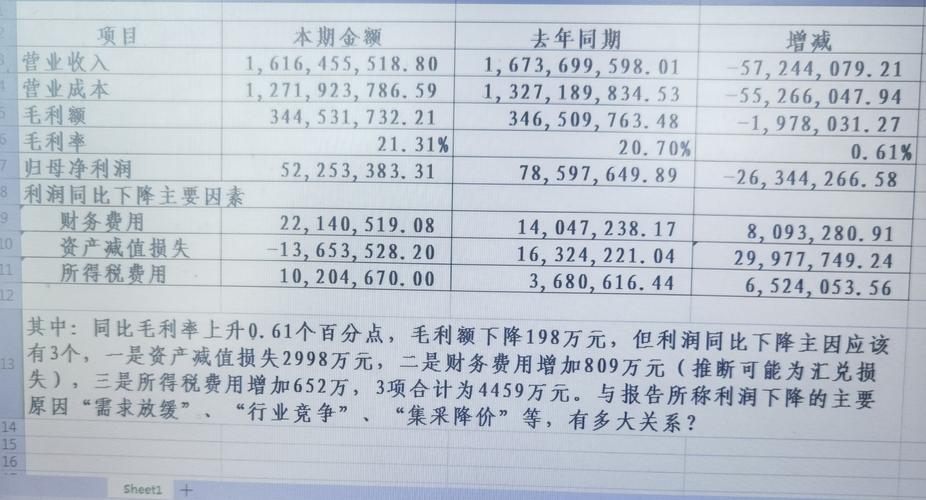 2 项目 本期金额 去年同期 增减
3 营业收入 1,616,455,518.80 1,673,699,598.01 -57,244,079.21
4 营业成本 1,271,923,786.59 1,327,189,834.53 -55,266,047.94
5 毛利额 344,531,732.21 346,509,763.48 -1,978,031.27
6 毛利率 21.31% 20.70% 0.61%
7 归母净利润 52,253,383.31 78,597,649.89 -26,344,266.58
8 利润同比下降主要因素
9 财务费用 22,140,519.08 14,047,238.17 8,093,280.91
10 资产减值损失 -13,653,528.20 16,324,221.04 29,977,749.24
11 所得税费用 10,204,670.00 3,680,616.44 6,524,053.56
12
其中：同比毛利率上升0.61个百分点，毛利额下降198万元，但利润同比下降主因应该
13 有3个，一是资产减值损失2998万元，二是财务费用增加809万元（推断可能为汇兑损
失），三是所得税费用增加652万，3项合计为4459万元。与报告所称利润下降的主要
原因“需求放缓”、“行业竞争”、“集采降价”等，有多大关系？
14
15
16
Sheet1 +